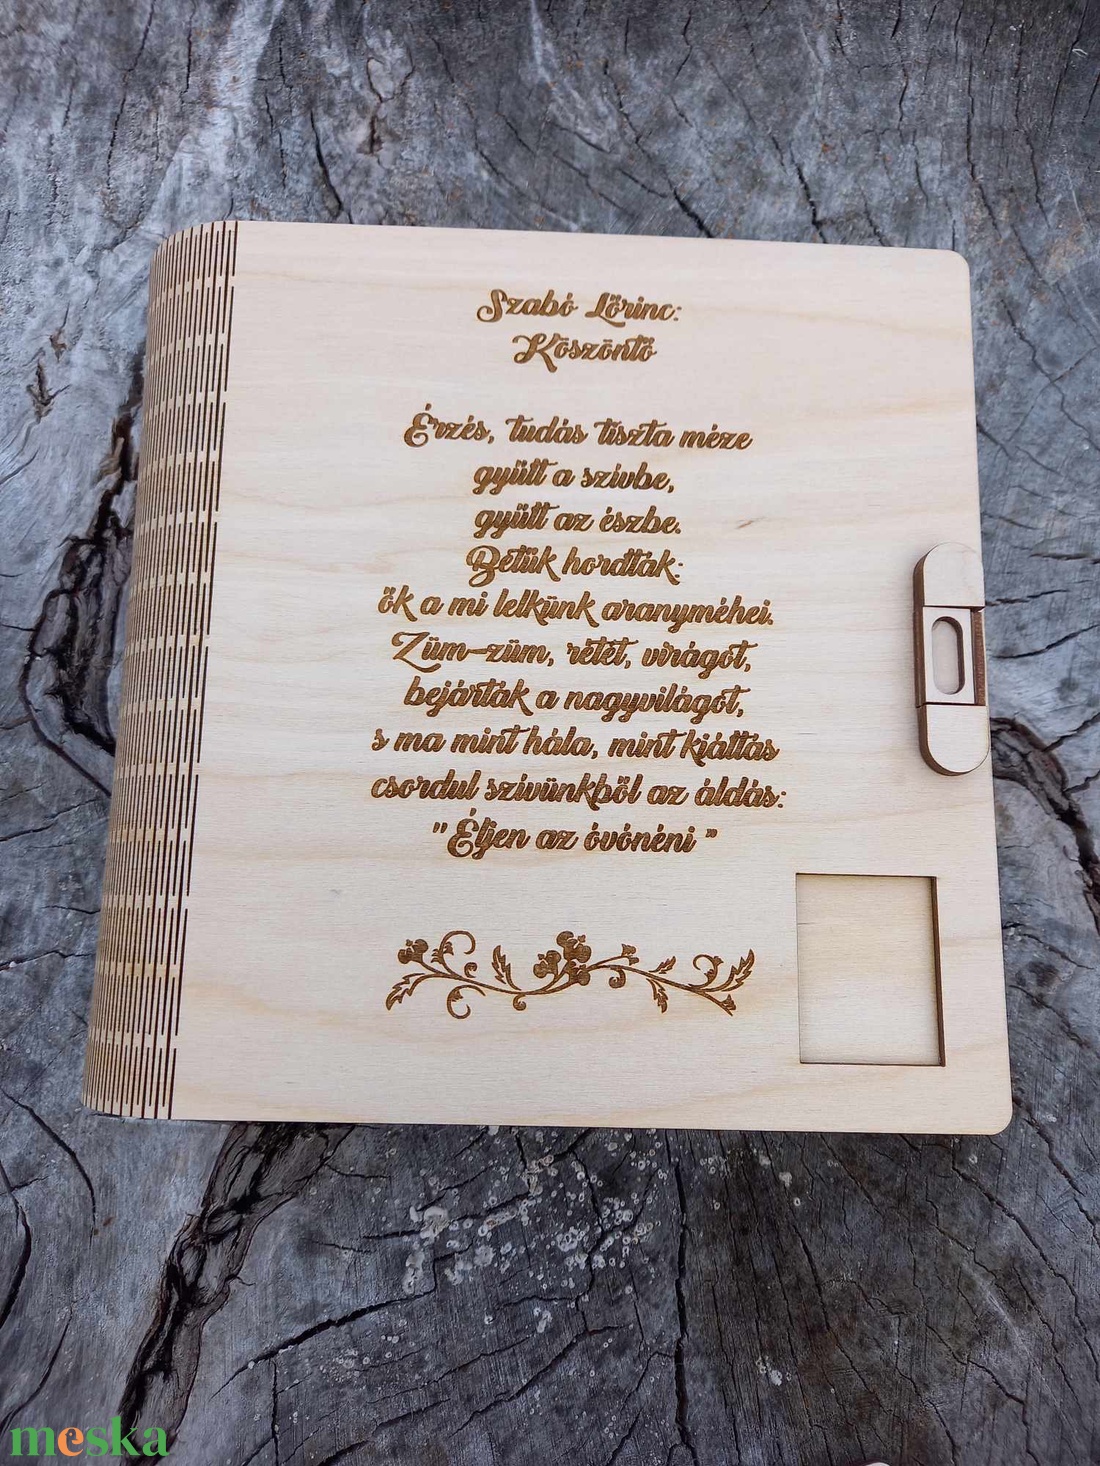 Szabó Lőrinc:
Köszöntő
Érzés, tudás tiszta méze
gyűlt a szívbe,
gyűlt az észbe.
Betűk hordták:
ők a mi lelkünk aranyméhei.
Züm-züm, rétet, virágot,
bejárták a nagyvilágot,
s ma mint hála, mint kiáltás
csordul szívünkből az áldás:
"Éljen az óvónéni"
meska